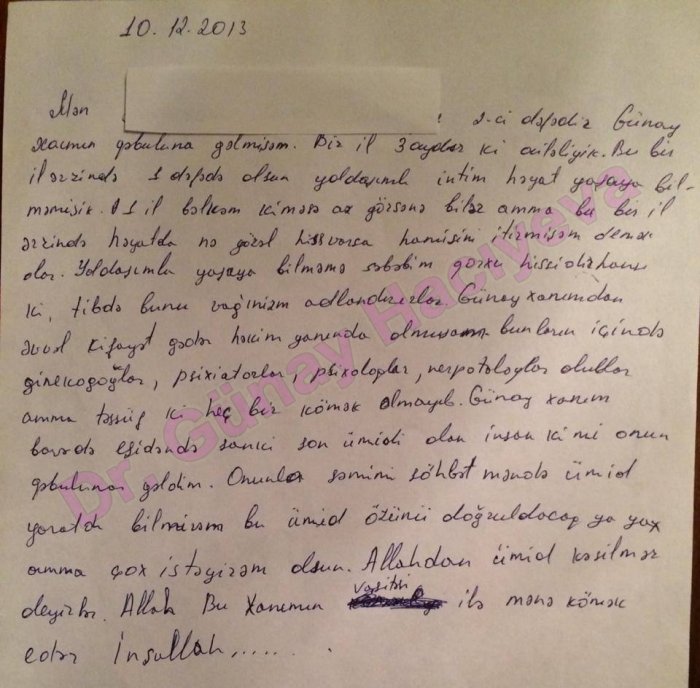 10.12.2013
Mən 2-ci dəfədir Günay
xanımın qəbuluna gəlmişəm. Bir il 3 aydır ki ailəliyik. Bu bir
il ərzində 1 dəfədə olsun yoldaşımla intim həyat yaşaya bil-
məmişik. 1 il bəlkəm kiməsə az görsənə bilər amma bu bir il
ərzində həyatda nə gözəl hiss varsa hamısını itirmişəm demək
olar. Yoldaşımla yaşaya bilməmə səbəbim qorxu hissidir hansı
ki, tibdə bunu vaginizm adlandırırlar. Günay xanımdan
əvvəl kifayət qədər həkim yanında olmuşam bunların içində
ginekoqoğlar, psixiatorlar, psixoloqlar, nevpotoloqlar olublar
amma təssüf ki heç bir kömək olmayıb. Günay xanım
barədə eşidəndə sanki son ümidi olan insan kimi onun
qəbuluna gəldim. Onunla səmimi söhbət məndə ümid
yaratdı bilmirəm bu ümid özünü doğruldacaq ya yox
amma çox istəyirəm olsun. Allahdan ümid kəsilməz
deyirlər. Allah Bu Xanımın vasitəsi ilə mənə kömək
edər İnşullah.......
Dr. Günay Hacıyeva